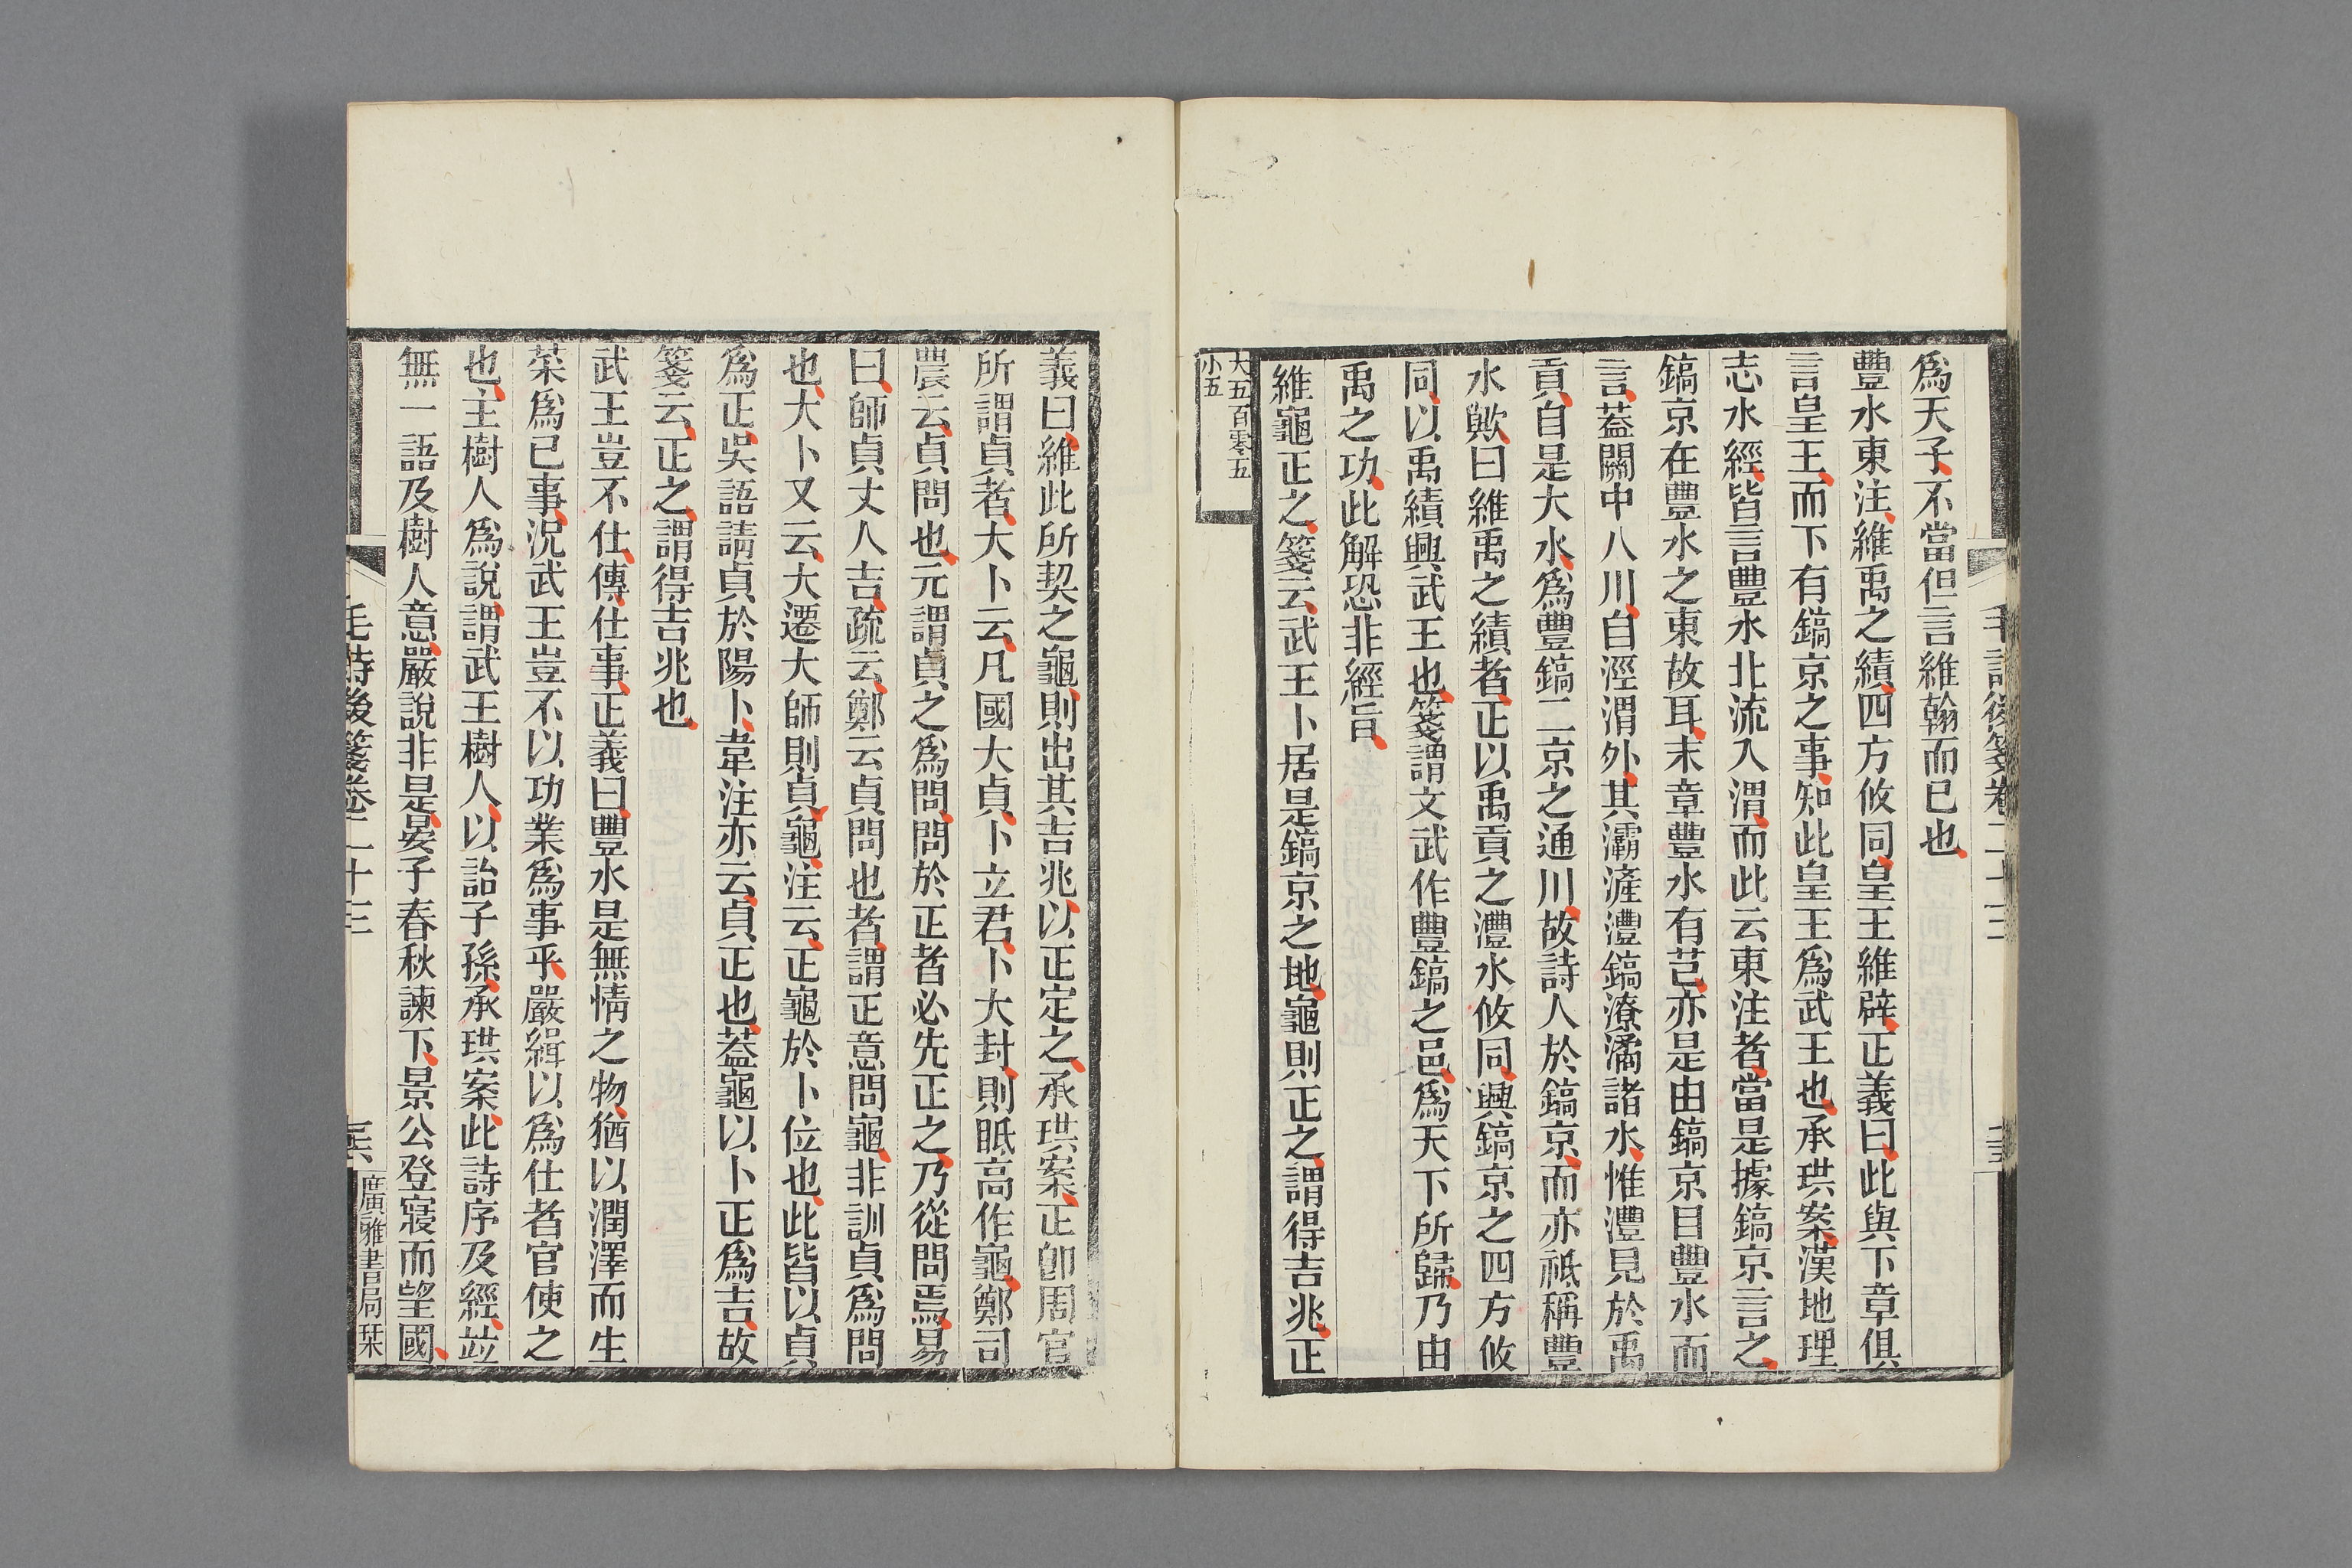 爲天子不當但言維翰而已也
豐水東注維禹之績四方攸同皇王維辟正義曰此與下章俱
言皇王而下有鎬京之事知此皇王爲武王也承珙案漢地理
志水經皆言豐水北流入渭而此云東注者當是據鎬京言之
鎬京在豐水之東故耳末章豐水有芑亦是由鎬京目豐水而
言蓋關中八川自涇渭外其灞滻灃鎬潦潏諸水惟灃見於禹
貢自是大水爲豐鎬二京之通川故詩人於鎬京而亦祗稱豐
水歟曰維禹之績者正以禹貢之灃水攸同興鎬京之四方攸
同以禹績興武王也箋謂文武作豐鎬之邑爲天下所歸乃由
禹之功此解恐非經旨
維龜正之箋云武王卜居是鎬京之地龜則正之謂得吉兆正
大五百零五
小五
義曰維此所契之龜則出其吉兆以正定之承珙案正卽周官
所謂貞者大卜云凡國大貞卜立君卜大封則眡高作龜鄭司
農云貞問也元謂貞之爲問問於正者必先正之乃從問焉易
曰師貞丈人吉疏云鄭云貞問也者謂正意問龜非訓貞爲問
也大卜又云大遷大師則貞龜注云正龜於卜位也此皆以貞
爲正吳語請貞於陽卜韋注亦云貞正也蓋龜以卜正爲吉故
箋云正之謂得吉兆也
武王豈不仕傳仕事正義曰豐水是無情之物猶以潤澤而生
菜爲已事況武王豈不以功業爲事乎嚴緝以爲仕者官使之
也主樹人爲說謂武王樹人以詒子孫承珙案此詩序及經竝
無一語及樹人意嚴說非是晏子春秋諫下景公登寢而望國
毛詩後箋卷二十三
廣雅書局栞